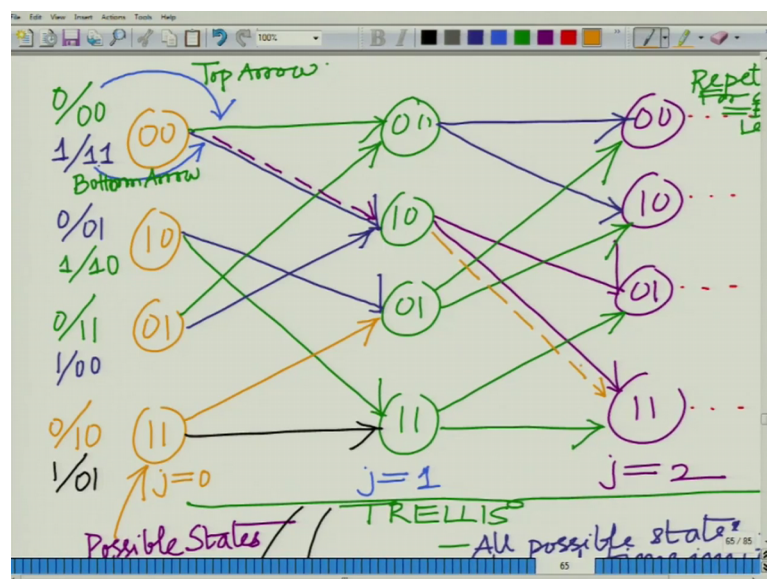 File Edit View Insert Actions Tools Help
100%
B I
Top Arrow
Repet
For
0/00
1/11
00
00
00
Bottom Arrow
0/01
1/10
10
10
10
0/11
1/00
01
01
01
0/10
1/01
11
11
11
j=0
j=1
j=2
TRELLIS
Possible States
All possible states
65 / 85
65